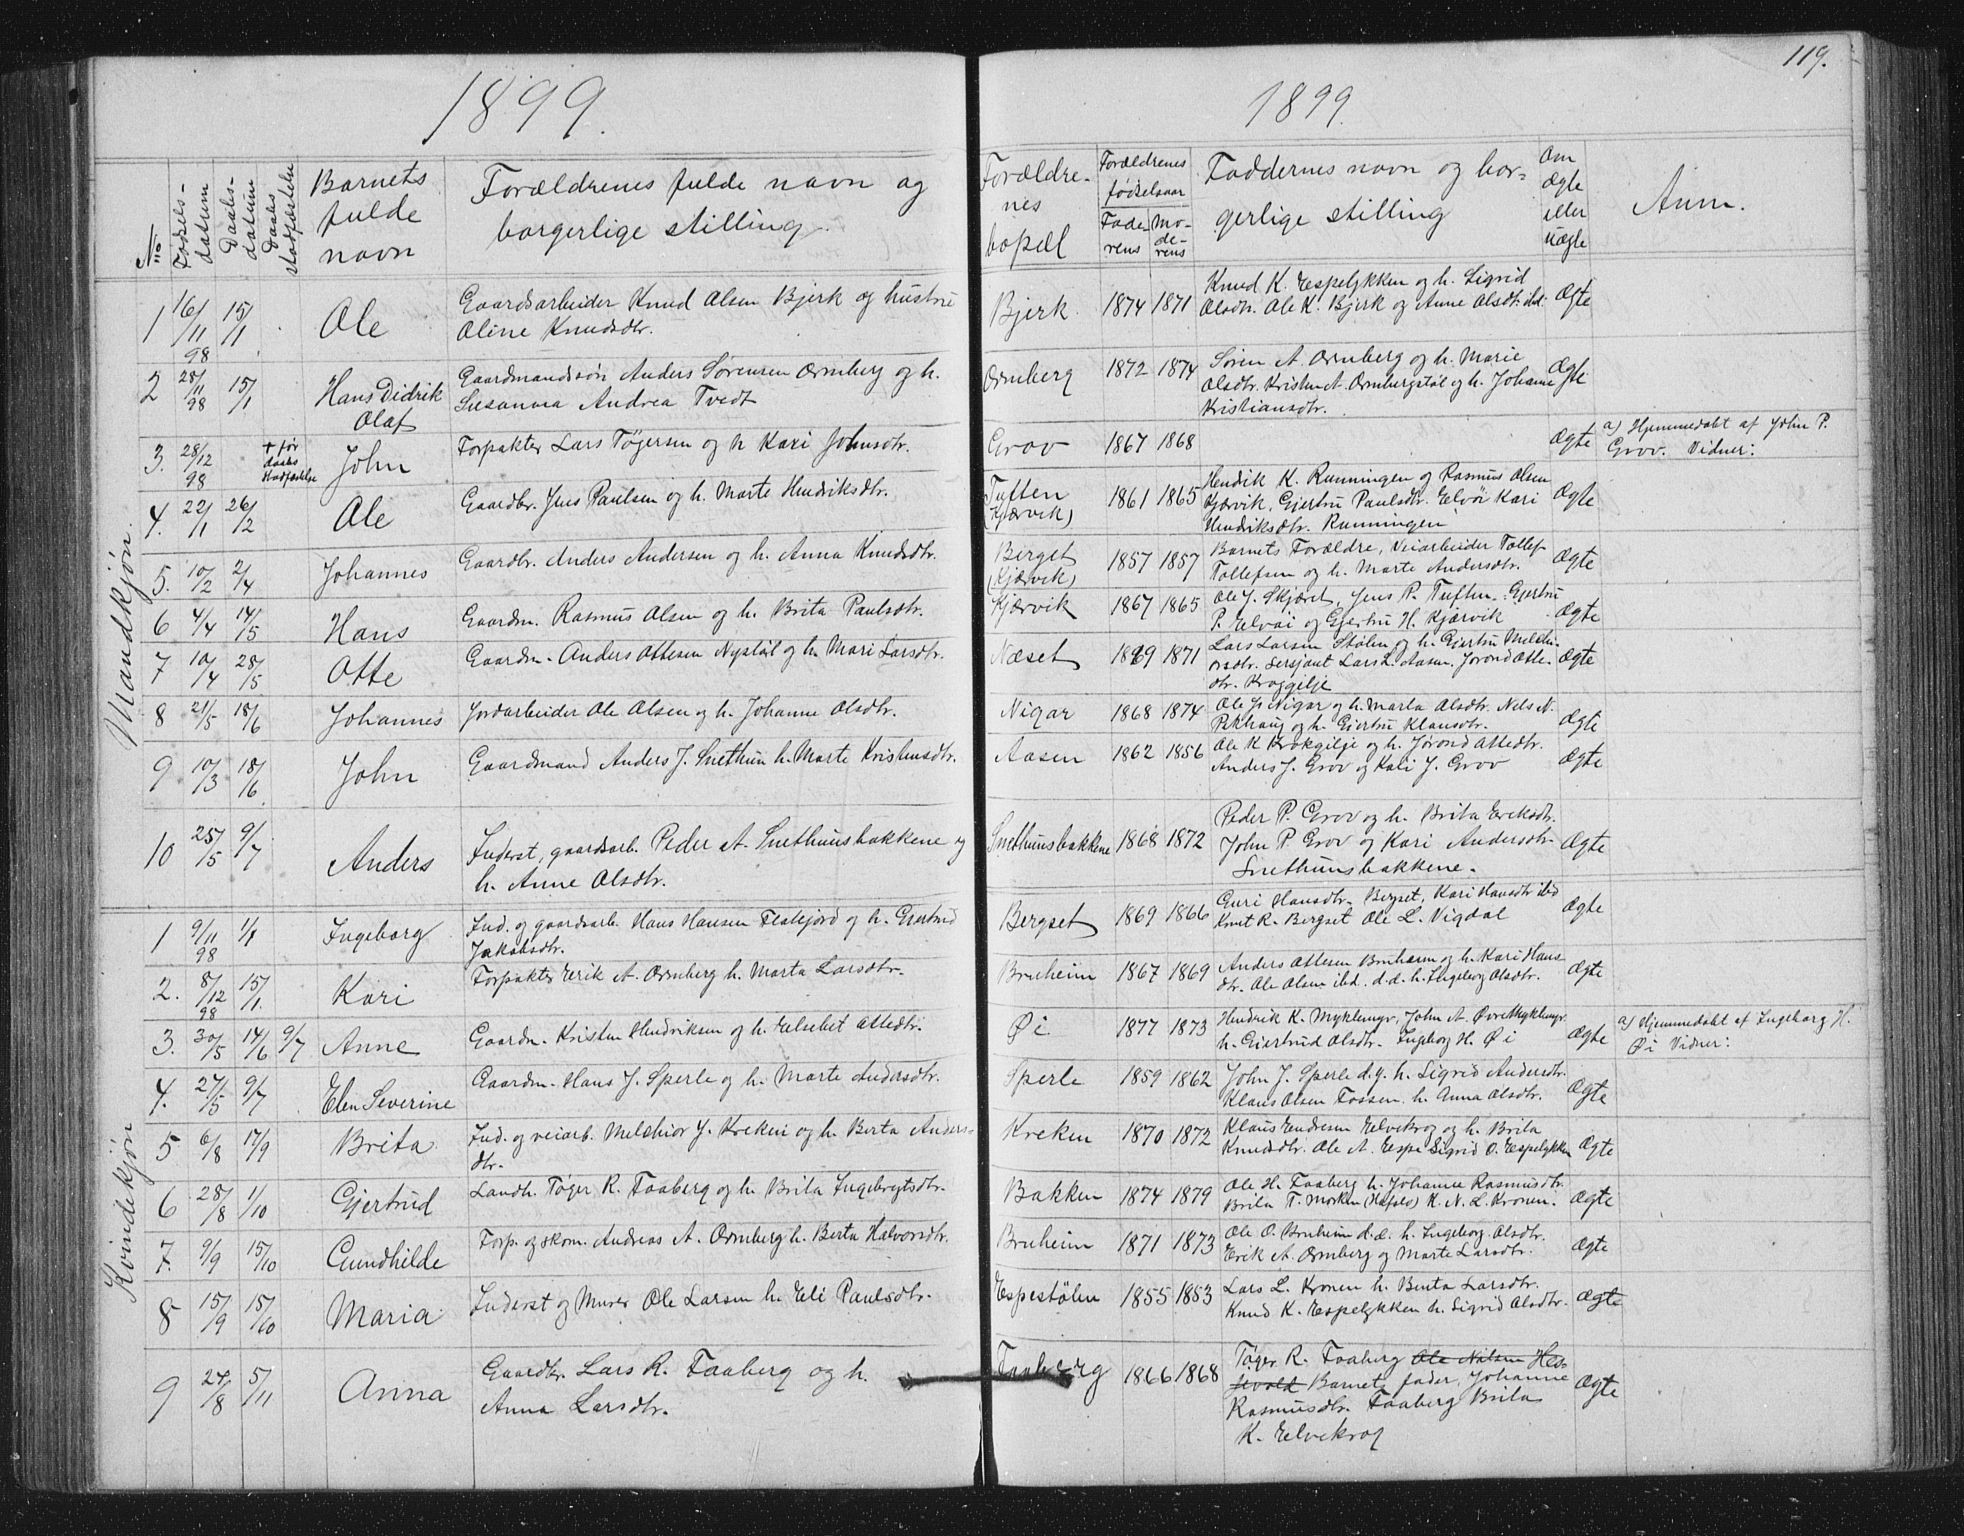 1899.
No
Fødsels-
datum
Daabs-
datum
Daabs
stadfæstelse
Barnets
fulde
navn
Forældrenes fulde navn og
borgerlige stilling.
Mandkjøn.
1 16/11 98 15/1 Ole Gaardsarbeider Knud Olsen Bjerk og hustru
Oline Knudsdtr.
2 28/11 98 15/1 Hans Didrik Gaardmandssøn Anders Sørensen Ornberg og h.
Olaf Susanna Andrea Tvedt
3. 28/12 98 + før daabs stadfæstelse John Forpakter Lars Tøgersen og h Kari Johnsdtr.
4. 22/1 26/2 Ole Gaardbr. Jens Paulsen og h. Marte Hendriksdtr.
5. 10/2 2/4 Johannes Gaardbr. Anders Andersen og h. Anna Knudsdtr.
6 4/4 14/5 Hans Gaardm. Rasmus Olsen og h. Brita Paulsdtr.
7 10/4 28/5 Otte Gaardm. Anders Ottesen Nystøl og h. Mari Larsdtr.
8 21/5 18/6 Johannes Jordarbeider Ole Olsen og h. Johanne Olsdtr.
9 10/3 18/6 John Gaardmand Anders J. Snethun h. Marte Kristensdtr.
10 25/5 9/7 Anders Inderst, gaardsarb. Peder A. Snethunsbakkene og
h. Anne Olsdtr.
Kvindekjøn
1 9/11 98 1/1 Ingeborg Ind. og gaardsarb. Hans Hansen Flatejord og h. Gjertrud
Jakobsdtr.
2. 8/12 98 15/1. Kari Forpakter Erik A. Ornberg h. Marta Larsdtr.
3. 30/5 14/6 9/7 Anne Gaardm. Kristen Hendriksen og h. Elsebet Ottedtr.
4. 27/5 9/7 Elen Severine Gaardm. Hans J. Sperle og h. Marte Andersdtr.
5 6/8 17/9 Brita Ind. og veiarb. Melchior J. Kreken og h. Berta Anders-
dtr.
6 28/8 1/10 Gjertrud Landh. Tøger R. Faaberg og h. Brita Ingebregtsdtr.
7. 9/9 15/10 Gundhilde Forp. og skom. Andreas A. Ornberg h. Berta Halvorsdtr.
8 15/9 15/10 Maria Inderst og Murer Ole Larsen h. Eli Paulsdtr.
9 24/8 5/11 Anna Gaardbr. Lars R. Faaberg og h.
Anna Larsdtr.
119.
1899.
Forældre-
nes
bopæl
Forældrenes
fødselsaar
Fade-
rens
Mo-
de-
rens
Faddernes navn og bor-
gerlige stilling
Om
ægte
eller
uægte
Anm.
Bjerk 1874 1871 Knud K. Espelykken og h. Sigrid
Olsdtr. Ole K. Bjerk og Anne Olsdtr. ibd. Ægte
Ornberg 1872 1874 Søren A. Ornberg og h. Marie
Olsdtr. Kristen A. Ornbergstøl og h. Johanne Ægte
Kristiansdtr.
Grov 1867 1868 Ægte a) Hjemmedøbt af John P.
Grov. Vidner:
Tuften
(Kjærvik) 1861 1865 Hendrik K. Runningen og Rasmus Olsen
Kjærvik, Gjertru Paulsdtr. Elvøi Kari Ægte
Hendriksdtr. Runningen
Berget
(Kjærvik) 1857 1857 Barnets Forældre, Veiarbeider Tollef
Tollefsen og h. Marte Andersdtr. Ægte
Kjærvik 1867 1865 Ole J. Skjæret, Jens P. Tuften, Gjertru
P. Elvøi og Gjertru H. Kjærvik Ægte
Næset 1869 1871 Lars Larsen Stølen og h. Gjertru Melchi-
orsdtr. Sersjant Lars L. Aasen, Jorond Otte- Ægte
dtr. Kroggilje
Nigar 1868 1874 Ole Js Nigar og h. Marta Olsdtr. Nels N.
og h. Gjertru Klausdtr. Ægte
Aasen 1862 1856 Ole K Krokgilje og h. Jorond Ottedtr.
Anders J. Grov og Kari J. Grov Ægte
Snethunsbakkene 1868 1872 Peder P. Grov og h. Brita Eriksdtr.
John P. Grov og Kari Andersdtr Ægte
Snethunsbakkene.
Bergset 1869 1866 Guri Hansdtr. Bergset, Kari Hansdtr ibd
Knut R. Bergset Ole L. Vigdal Ægte
Bruheim 1867 1869 Anders Ottesen Bruheim og h. Kari Hans
dtr. Ole Olsen ibd. d.d. h. Ingeborg Olsdtr. Ægte
Øi 1877 1873 Hendrik K. Myklemyr, John A. Øvre Myklemyr
h. Gjertrud Olsdtr. Ingeborg H. Øi Ægte a) Hjemmedøbt af Ingeborg H.
Øi Vidner:
Sperle 1859 1862 John J. Sperle d.y. h. Sigrid Andersdtr
Klaus Olsen Fossen h. Anna Olsdtr. Ægte
Kreken 1870 1872 Klaus Endresen Elvekrog og h. Brita
Knudsdtr. Ole A. Espe Sigrid O. Espelykken Ægte
Bakken 1874 1879 Ole H. Faaberg h. Johanne Rasmusdtr.
Brita T. Morken (Hafslo) K. N. L. Kronen. Ægte
Bruheim 1871 1873 Ole O. Bruheim d.æ. h. Ingeborg Olsdtr.
Erik A. Ornberg og Marte Larsdtr. Ægte
Espestølen 1855 1853 Lars L. Kronen h. Berta Larsdtr.
Knud K. Espelykken h. Sigrid Olsdtr. Ægte
Faaberg 1866 1868 Tøger R. Faaberg Ole Nilsen Hes-
jevold Barnets fader, Johanne Ægte
Rasmusdtr. Faaberg Brita
K. Elvekrog